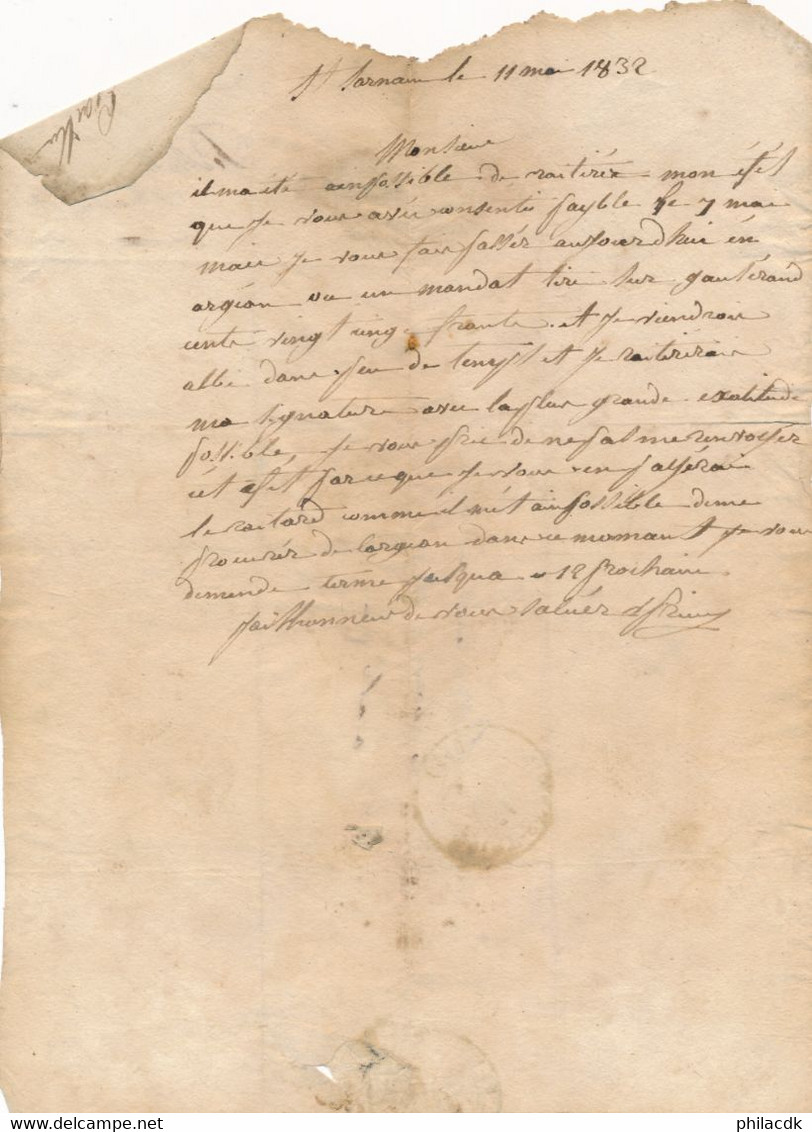 St Sernain le 11 mai 1832
Monsieur
il ma été ainpossible de raitirér mon éfét
que je vous avéi consenti payble le 7 mai
mais je vous fais passér aujourdhui én
argéan ou un mandat tiré sur
cente vingt frants et je viendrai
albi dans peu de temps et je raitirerai
ma signature avec la plus grande exatitude
possible, je vous prie de ne pas me renvoyer
cét éfét parceque je vous én payérai
le raitard comme il mét ainpossible de me
procurér de largéan dans ce momant je vous
demende terme jusqua 12 prochain
jai lhonneur de vous saluér
delcampe.net
philacdk